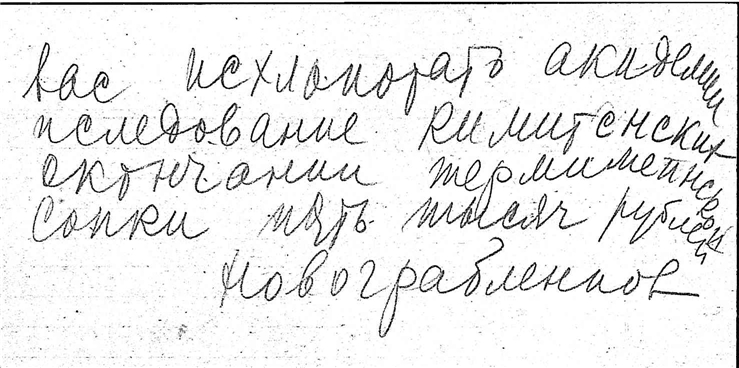 вас исхлопотать академии
иследование кимитенских
окончании термиметнской
сопки пять тысяч рублей
Новограбленнов